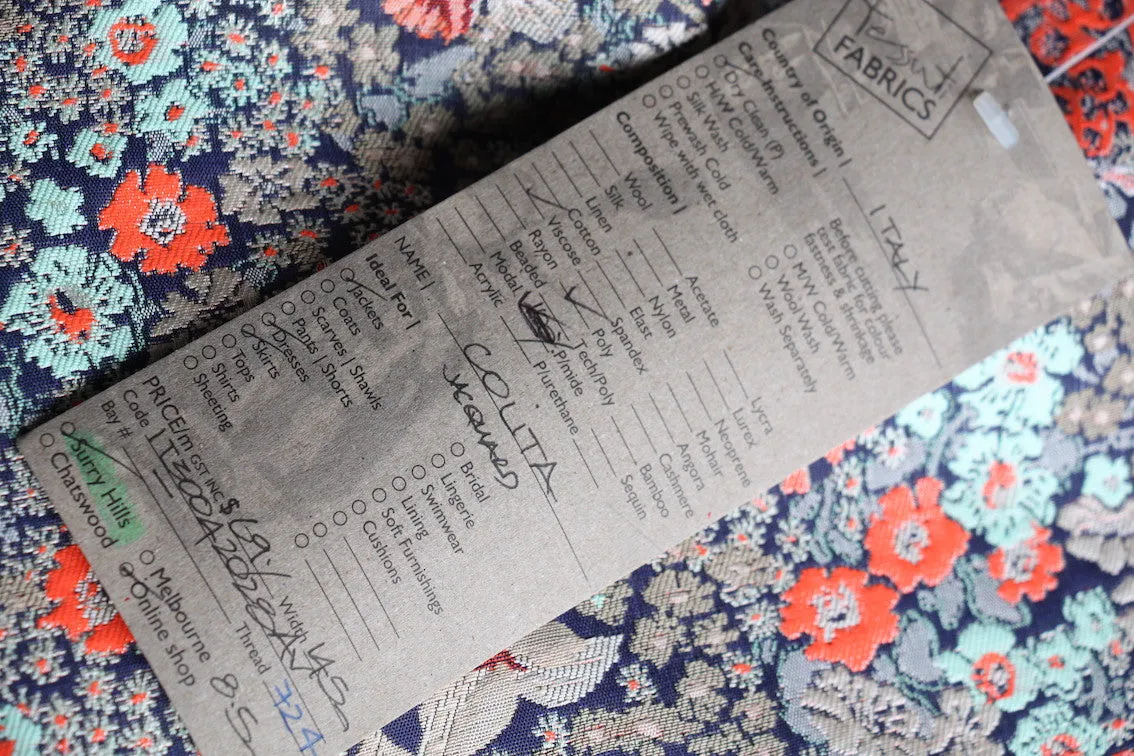 Tessuti
FABRICS
Country of Origin | ITALY
Care Instructions |
Before cutting please
test fabric for colour
fastness & shrinkage
Dry Clean (P)
H/W Cold/Warm
Silk Wash
Prewash Cold
Wipe with wet cloth
M/W Cold/Warm
Wool Wash
Wash Separately
Composition |
Wool
Silk
Linen
Cotton
Viscose
Rayon
Beaded
Modal
Acrylic
Acetate
Metal
Nylon
Elast
Spandex
Poly
Tech/Poly
P/mide
P/urethane
Lycra
Lurex
Neoprene
Mohair
Angora
Cashmere
Bamboo
Sequin
NAME | COLITA
JACQUARD
Ideal For |
Jackets
Coats
Scarves | Shawls
Pants | Shorts
Dresses
Skirts
Tops
Shirts
Sheeting
Bridal
Lingerie
Swimwear
Lining
Soft Furnishings
Cushions
PRICE/m GST INC $ 69.- Width 145
Code
Thread 724
Bay #
Surry Hills
Chatswood
Melbourne
Online shop 8.5